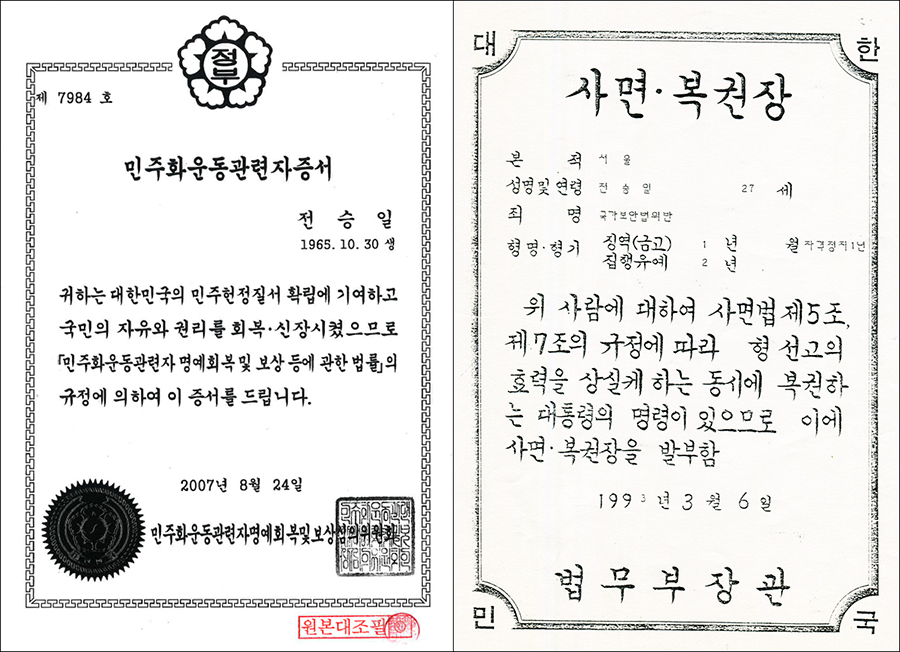 정부
제 7984 호
민주화운동관련자증서
전 승 일
1965. 10. 30 생
귀하는 대한민국의 민주헌정질서 확립에 기여하고
국민의 자유와 권리를 회복·신장시켰으므로
「민주화운동관련자 명예회복 및 보상 등에 관한 법률」의
규정에 의하여 이 증서를 드립니다.
2007년 8월 24일
민주화운동관련자명예회복및보상심의위원회
원본대조필
대 한
사면·복권장
본 적 서 울
성명및 연령 전 승 일 27 세
죄 명 국가보안법위반
형명·형기 징역(금고) 1 년 월 자격정지1년
집행유예 2 년
위 사람에 대하여 사면법 제5조,
제7조의 규정에 따라 형 선고의
효력을 상실케 하는 동시에 복권하
는 대통령의 명령이 있으므로 이에
사면·복권장을 발부함
1993년 3월 6일
법 무 부 장 관
민 국